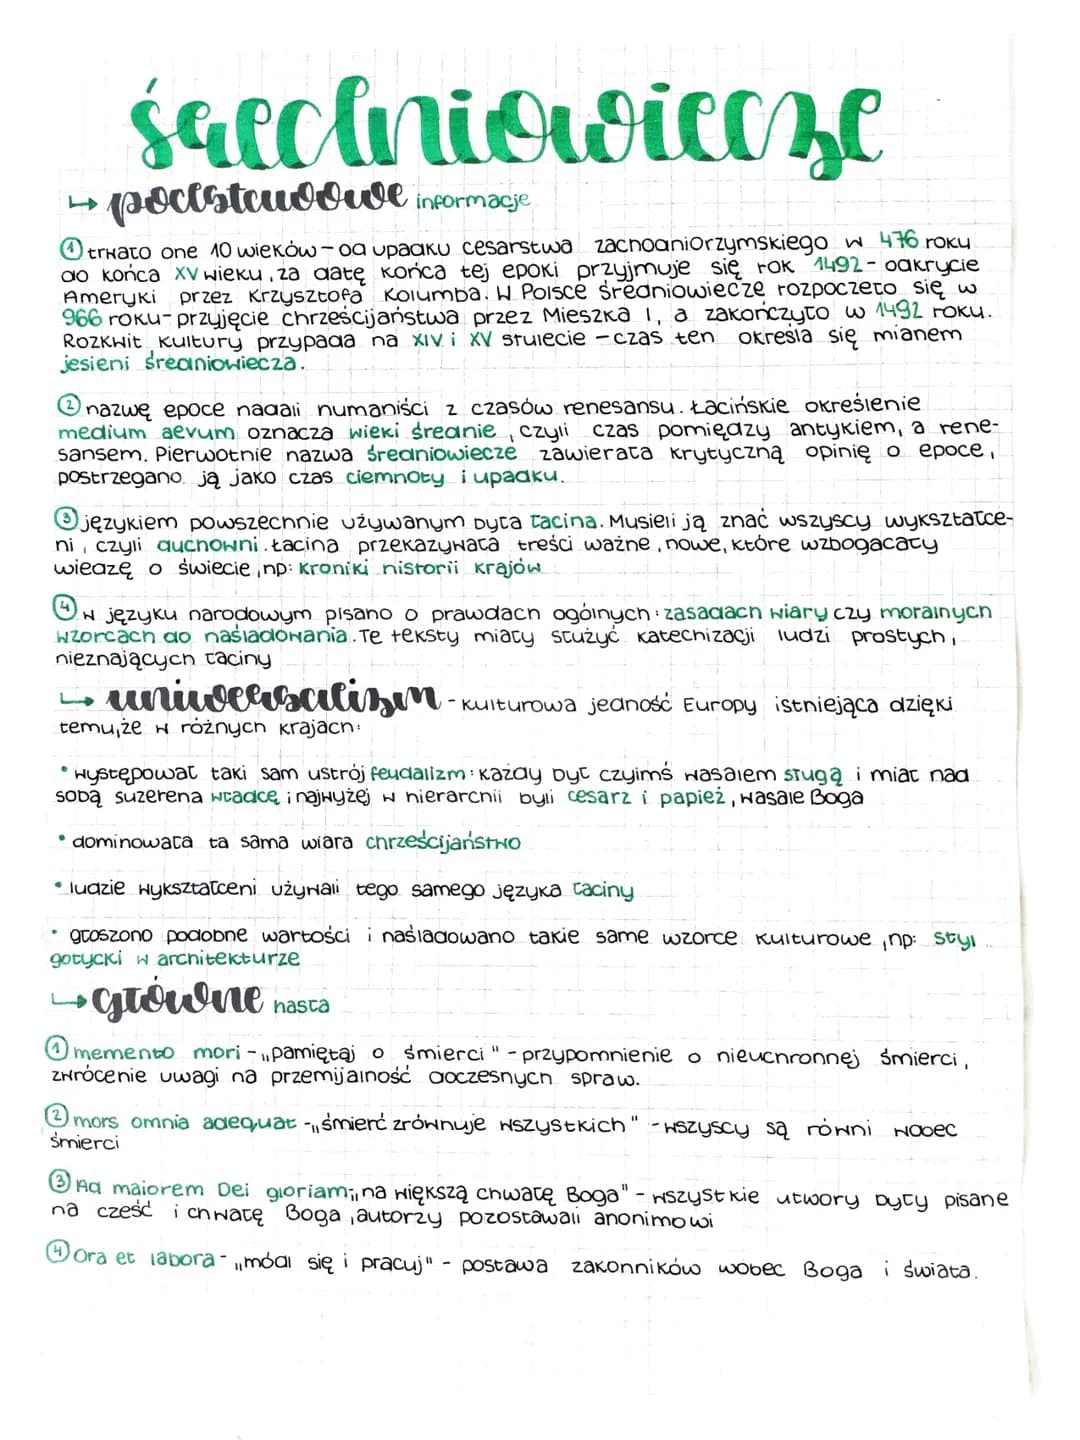 średniowiecze
↳ podstawowe informacje
① trwało one 10 wieków - od upadku cesarstwa zachodniorzymskiego w 476 roku
do końca XV wieku, za datę końca tej epoki przyjmuje się rok 1492 - odkrycie
Ameryki przez Krzysztofa Kolumba. W Polsce średniowiecze rozpoczęło się w
966 roku - przyjęcie chrześcijaństwa przez Mieszka I, a zakończyło w 1492 roku.
Rozkwit kultury przypada na XIV i XV stulecie - czas ten określa się mianem
jesieni średniowiecza.
② nazwę epoce nadali humaniści z czasów renesansu. Łacińskie określenie
medium aevum oznacza wieki średnie, czyli czas pomiędzy antykiem, a rene-
sansem. Pierwotnie nazwa średniowiecze zawierała krytyczną opinię o epoce,
postrzegano ją jako czas ciemnoty i upadku.
③ językiem powszechnie używanym była łacina. Musieli ją znać wszyscy wykształce-
ni, czyli duchowni. Łacina przekazywała treści ważne, nowe, które wzbogacały
wiedzę o świecie, np: kroniki historii krajów
④ w języku narodowym pisano o prawdach ogólnych: zasadach wiary czy moralnych
wzorcach do naśladowania. Te teksty miały służyć katechizacji ludzi prostych,
nieznających łaciny
↳ uniwersalizm - kulturowa jedność Europy istniejąca dzięki
temu, że w różnych krajach:
• występował taki sam ustrój feudalizm: każdy był czyimś wasalem sługą i miał nad
sobą suzerena władcę, i najwyżej w hierarchii byli cesarz i papież, wasale Boga
• dominowała ta sama wiara chrześcijaństwo
• ludzie wykształceni używali tego samego języka łaciny
• głoszono podobne wartości i naśladowano takie same wzorce kulturowe, np: styl
gotycki w architekturze
↳ główne hasła
① memento mori - „pamiętaj o śmierci" - przypomnienie o nieuchronnej śmierci,
zwrócenie uwagi na przemijalność doczesnych spraw.
② mors omnia adequat - „śmierć zrównuje wszystkich" - wszyscy są równi wobec
śmierci
③ Ad maiorem Dei gloriam; „na większą chwałę Boga" - wszystkie utwory były pisane
na cześć i chwałę Boga, autorzy pozostawali anonimowi
④ Ora et labora - „módl się i pracuj" - postawa zakonników wobec Boga i świata.